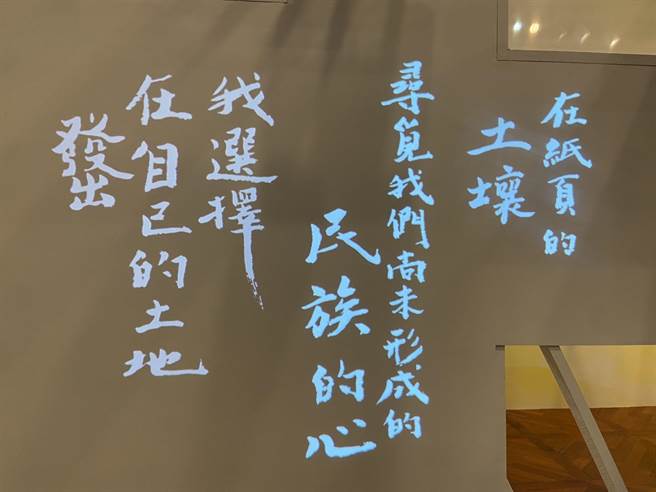 在紙頁的
土壤
尋覓我們尚未形成的
民族的心
我選擇
在自己的土地
發出